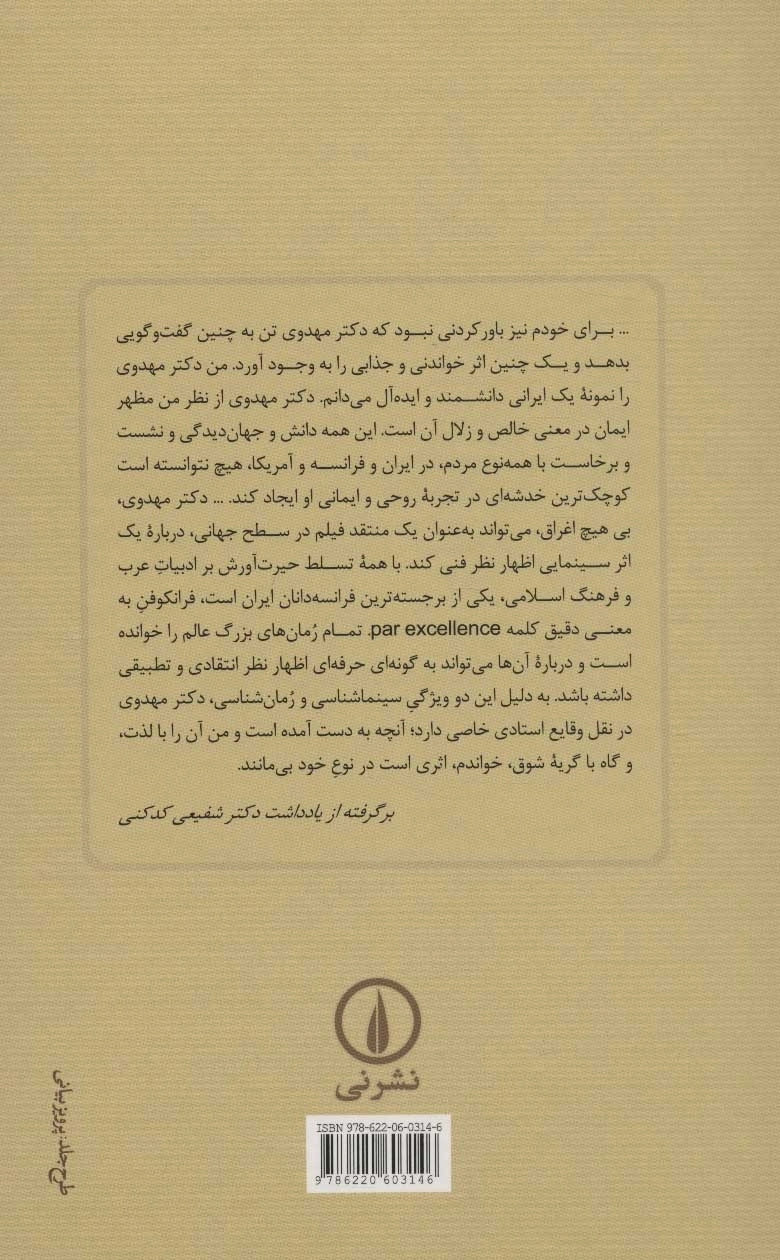 ... بــرای خودم نیز باورکردنی نبــود که دکتر مهدوی تن به چنین گفت‌وگویی
بدهــد و یــک چنین اثر خواندنی و جذابی را به وجــود آورد. من دکتر مهدوی
را نمونهٔ یک ایرانی دانشــمند و ایده‌آل می‌دانم. دکتر مهدوی از نظر من مظهر
ایمان در معنی خالص و زلال آن است. این همه دانش و جهان‌دیدگی و نشست
و برخاســت با همه‌نوع مردم، در ایران و فرانســه و آمریکا، هیچ نتوانسته است
کوچک‌ترین خدشه‌ای در تجربهٔ روحی و ایمانی او ایجاد کند. ... دکتر مهدوی،
بی هیچ اغراق، می‌تواند به‌عنوان یک منتقد فیلم در ســطح جهانی، دربارهٔ یک
اثر ســینمایی اظهار نظر فنی کند. با همهٔ تســلط حیرت‌آورش بر ادبیاتِ عرب
و فرهنگ اســلامی، یکی از برجسته‌ترین فرانسه‌دانان ایران است، فرانکوفنِ به
معنــی دقیق کلمه par excellence. تمــام رُمان‌های بزرگ عالم را خوانده
اســت و دربارهٔ آن‌ها می‌تواند به گونه‌ای حرفه‌ای اظهار نظر انتقادی و تطبیقی
داشته باشد. به دلیل این دو ویژگیِ سینماشناسی و رُمان‌شناسی، دکتر مهدوی
در نقل وقایع استادی خاصی دارد؛ آنچه به دست آمده است و من آن را با لذت،
و گاه با گریهٔ شوق، خواندم، اثری است در نوعِ خود بی‌مانند.
برگرفته از یادداشت دکتر شفیعی کدکنی
نشرنی
ISBN 978-622-06-0314-6
9 786220 603146
طرح جلد: پرویز بیانی